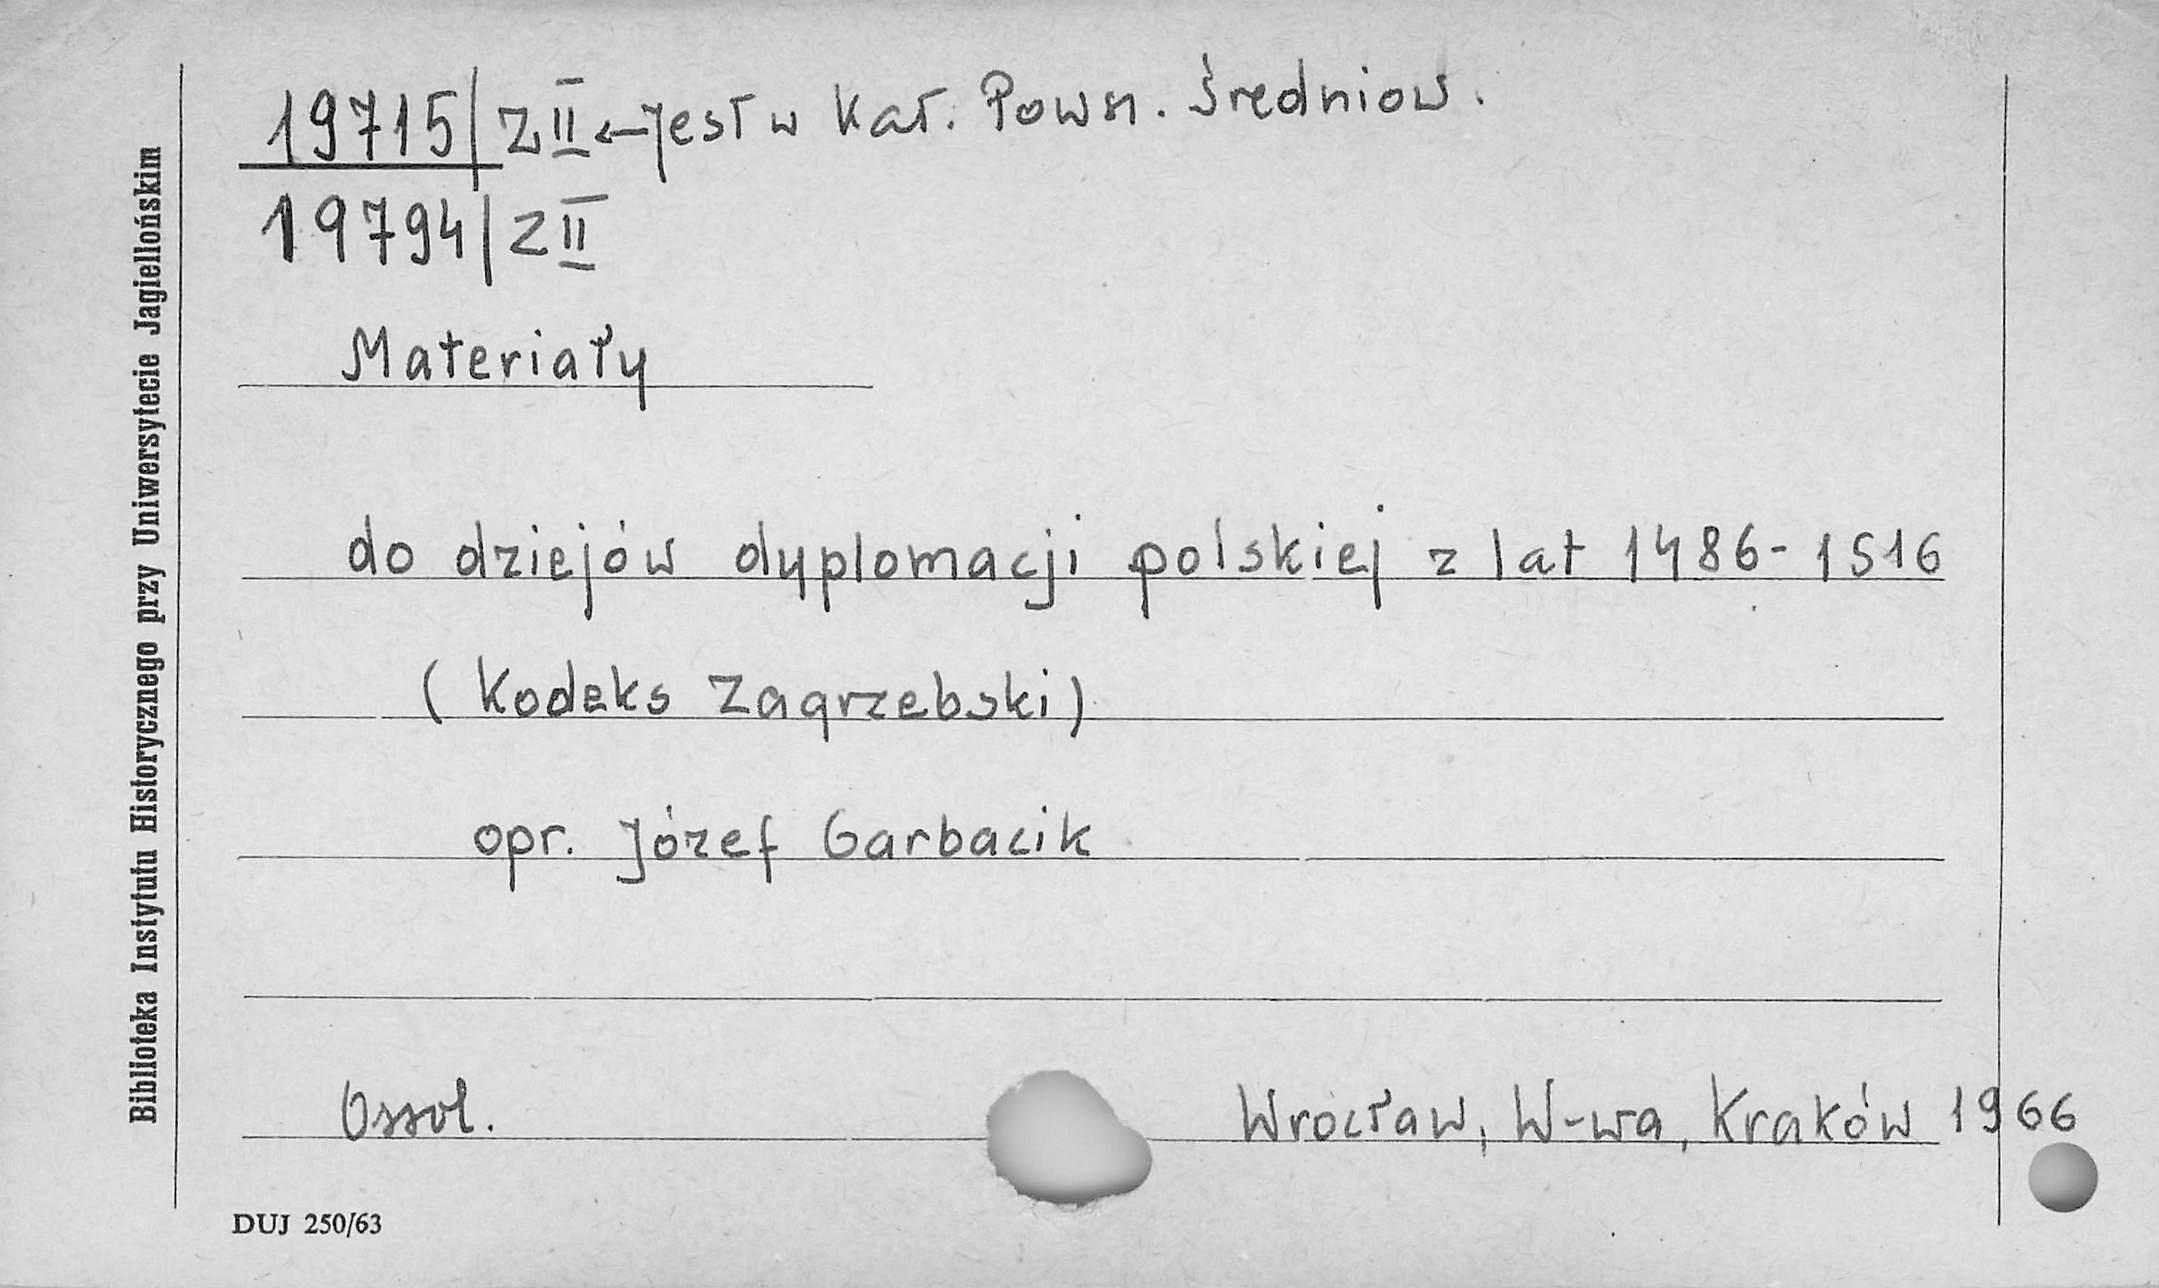 19715/Z II ← jest w Kat. Powsz. Średniow.
19794/Z II
Materiały
do dziejów dyplomacji polskiej z lat 1486-1516
(Kodeks Zagrzebski)
opr. Józef Garbacik
Ossol. Wrocław, W-wa, Kraków 1966
DUJ 250/63
Biblioteka Instytutu Historycznego przy Uniwersytecie Jagiellońskim